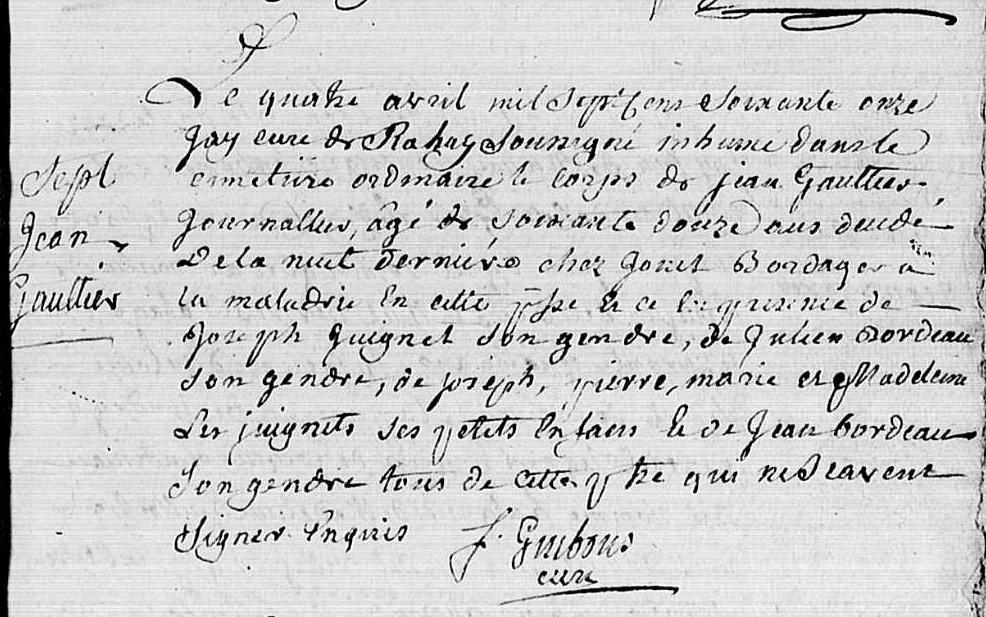 Le quatre avril mil Sept Cens Soixante onze
Sept
Jean
Gaultier
Jay curé de Rahay Soussigné inhumé dans le
cimetiere ordinaire le corps de jean Gaultier
journallier, âgé de soixante douze ans decedé
De la nuit derniére chez Bordager a
la maladrie en cette psse & ce en presence de
joseph juignet son gendre, de Julien Bordeau
son gendre, de joseph, pierre, marie et Madeleine
Les juignets ses petits Enfans & de Jean bordeau
son gendre tous de cette psse qui ne Scavent
Signer Enquis
f. Guibous
curé